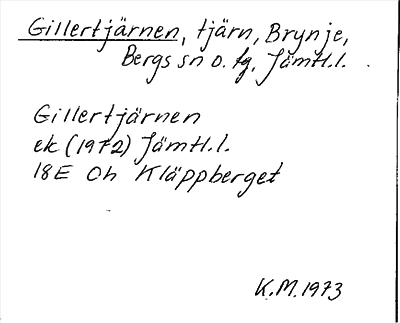 Gillertjärnen, tjärn, Brynje,
Bergs sn o. tg, Jämtl.l.
Gillertjärnen
ek (1972) Jämtl.l.
18E 0h Kläppberget
K.M. 1973